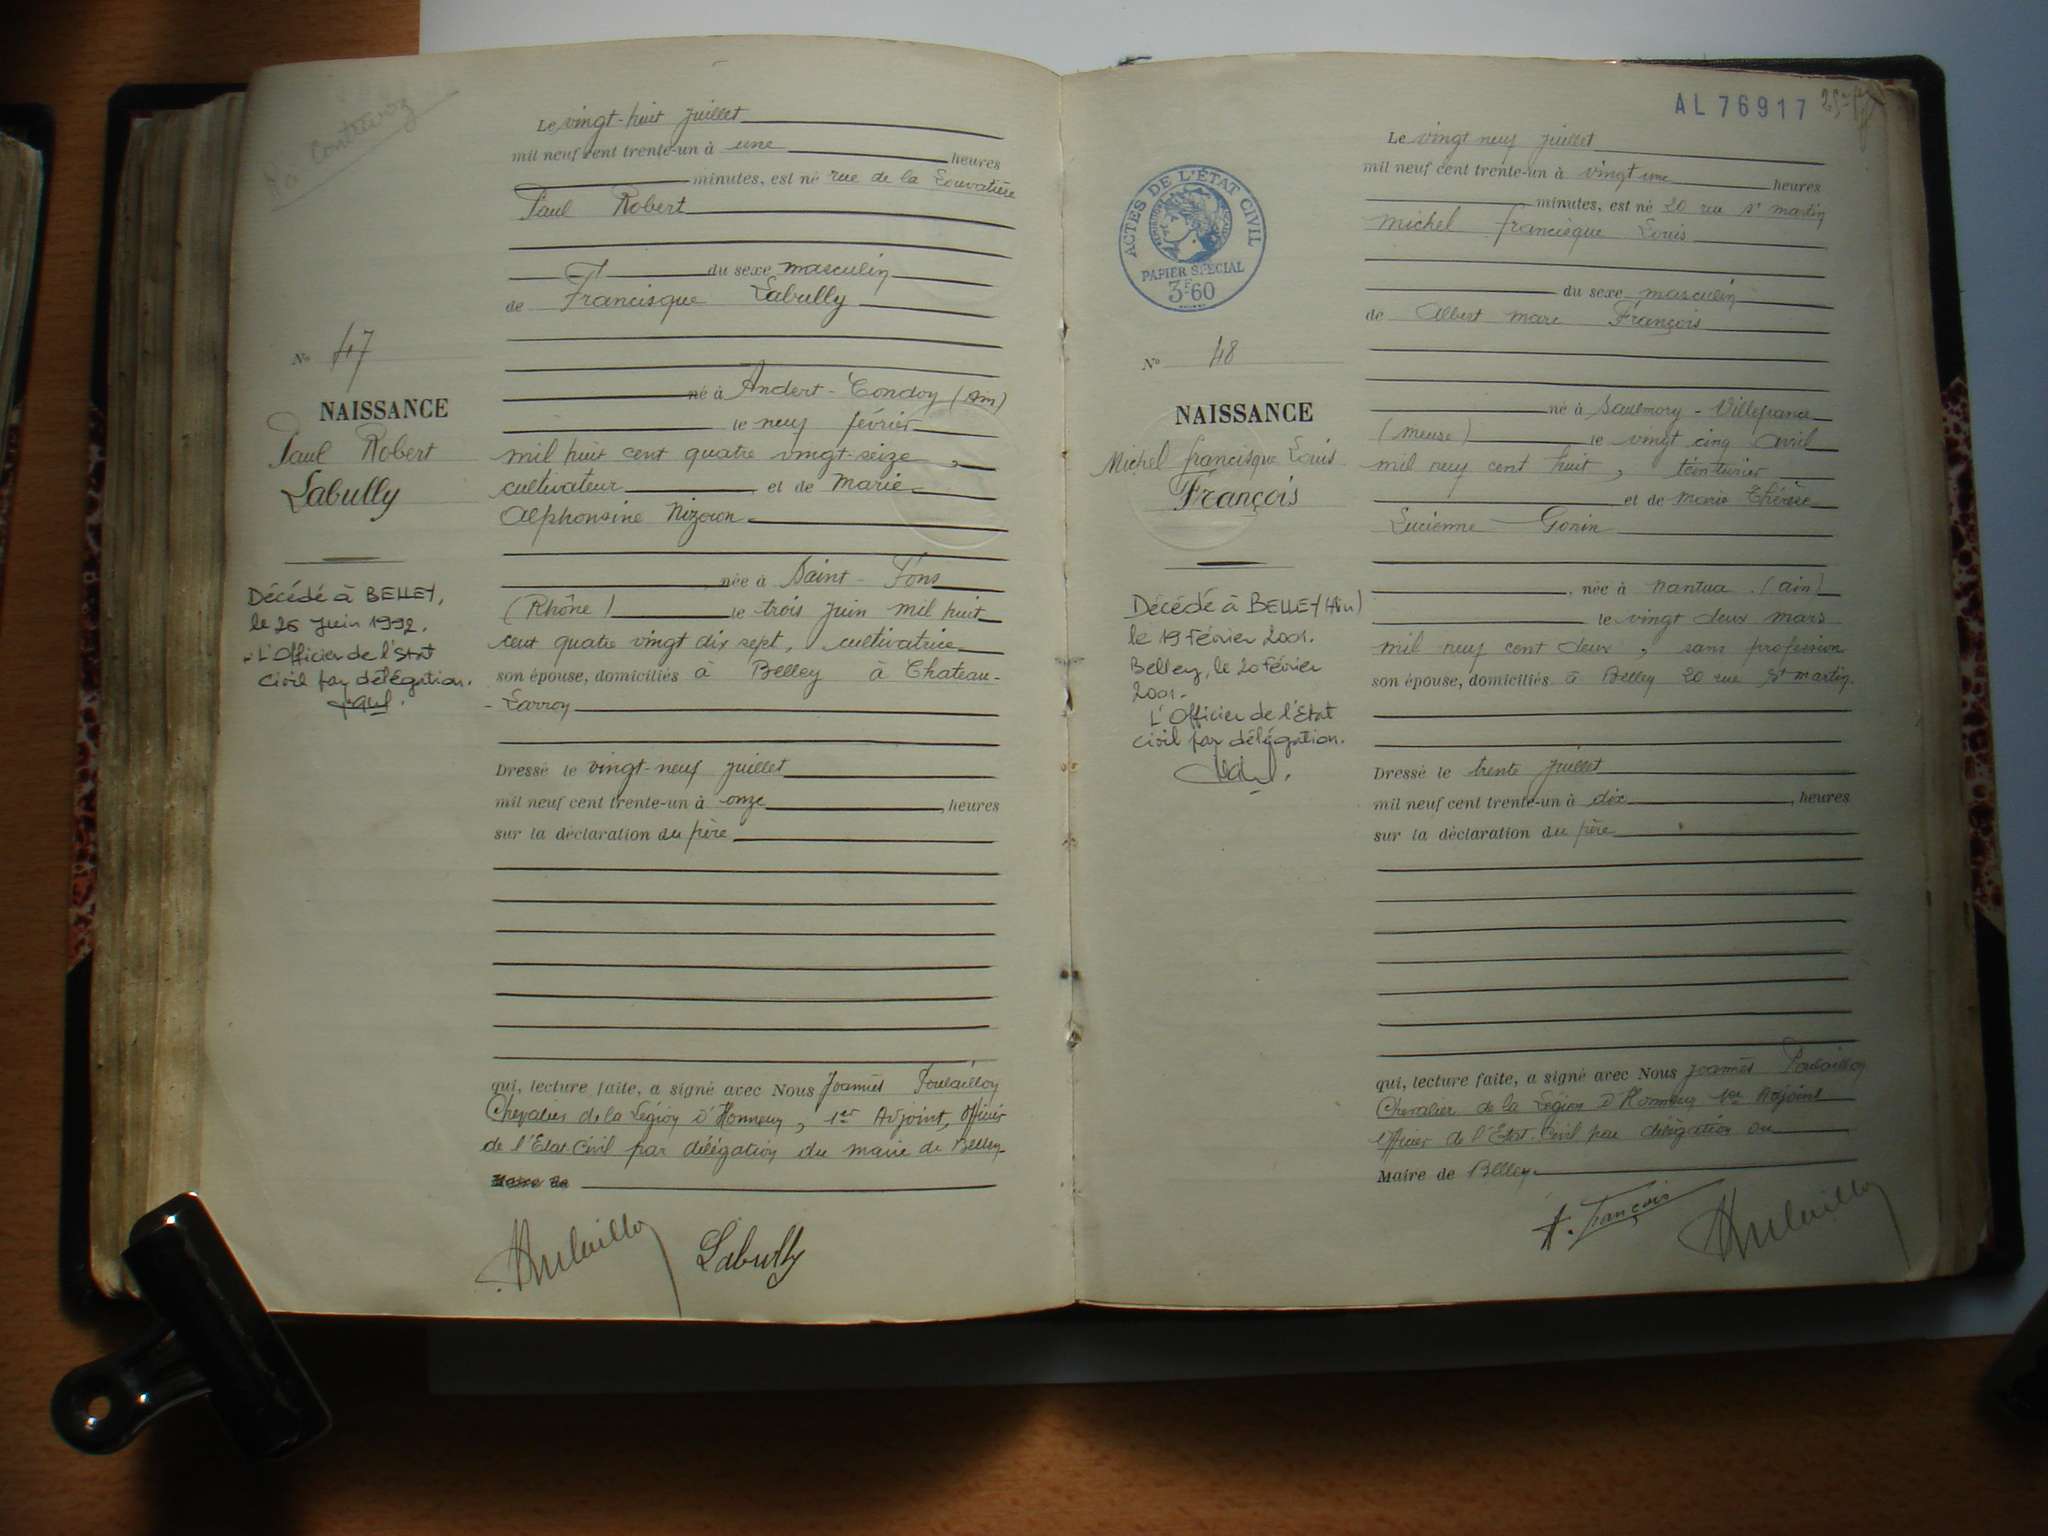 Le vingt-huit juillet
mil neuf cent trente-un à une heures
minutes, est né rue de la
Paul Robert
du sexe masculin
de Francisque Labully
né à Andert-Condoy (Ain)
le neuf février
mil huit cent quatre vingt-seize,
cultivateur et de Marie
Alphonsine
née à Saint-Fons
(Rhône) le trois juin mil huit
cent quatre vingt dix sept, cultivatrice
son épouse, domiciliés à Belley à Chateau-
-Larroy
Dressé le vingt-neuf juillet
mil neuf cent trente-un à onze, heures
sur la déclaration du père
qui, lecture faite, a signé avec Nous Joannès
Chevalier de la Légion d'Honneur, 1er Adjoint, Officier
de l'Etat Civil par délégation du maire de Belley
Maire de
Labully
No 47
NAISSANCE
Paul Robert
Labully
Décédé à BELLEY,
le 26 Juin 1992.
L'Officier de l'Etat
Civil par délégation.
AL 76917
Le vingt neuf juillet
mil neuf cent trente-un à vingt une heures
minutes, est né 20 rue St martin
Michel francisque Louis
du sexe masculin
de Albert marc François
né à Saulmory-Villefranche
(meuse) le vingt cinq avril
mil neuf cent huit, teinturier
et de marie Thérèse
Lucienne Gonin
, née à nantua (ain)
le vingt deux mars
mil neuf cent deux, sans profession
son épouse, domiciliés à Belley 20 rue St martin.
Dressé le trente juillet
mil neuf cent trente-un à dix, heures
sur la déclaration du père
qui, lecture faite, a signé avec Nous Joannès
Chevalier de la Légion d'Honneur 1er Adjoint
Officier de l'Etat-Civil par délégation du
Maire de Belley
A. François
ACTES DE L'ÉTAT CIVIL
PAPIER SPÉCIAL
3F60
No 48
NAISSANCE
Michel francisque Louis
François
Décédé à BELLEY (Ain)
le 19 Février 2001.
Belley, le 20 Février
2001.-
L'Officier de l'Etat
civil par délégation.